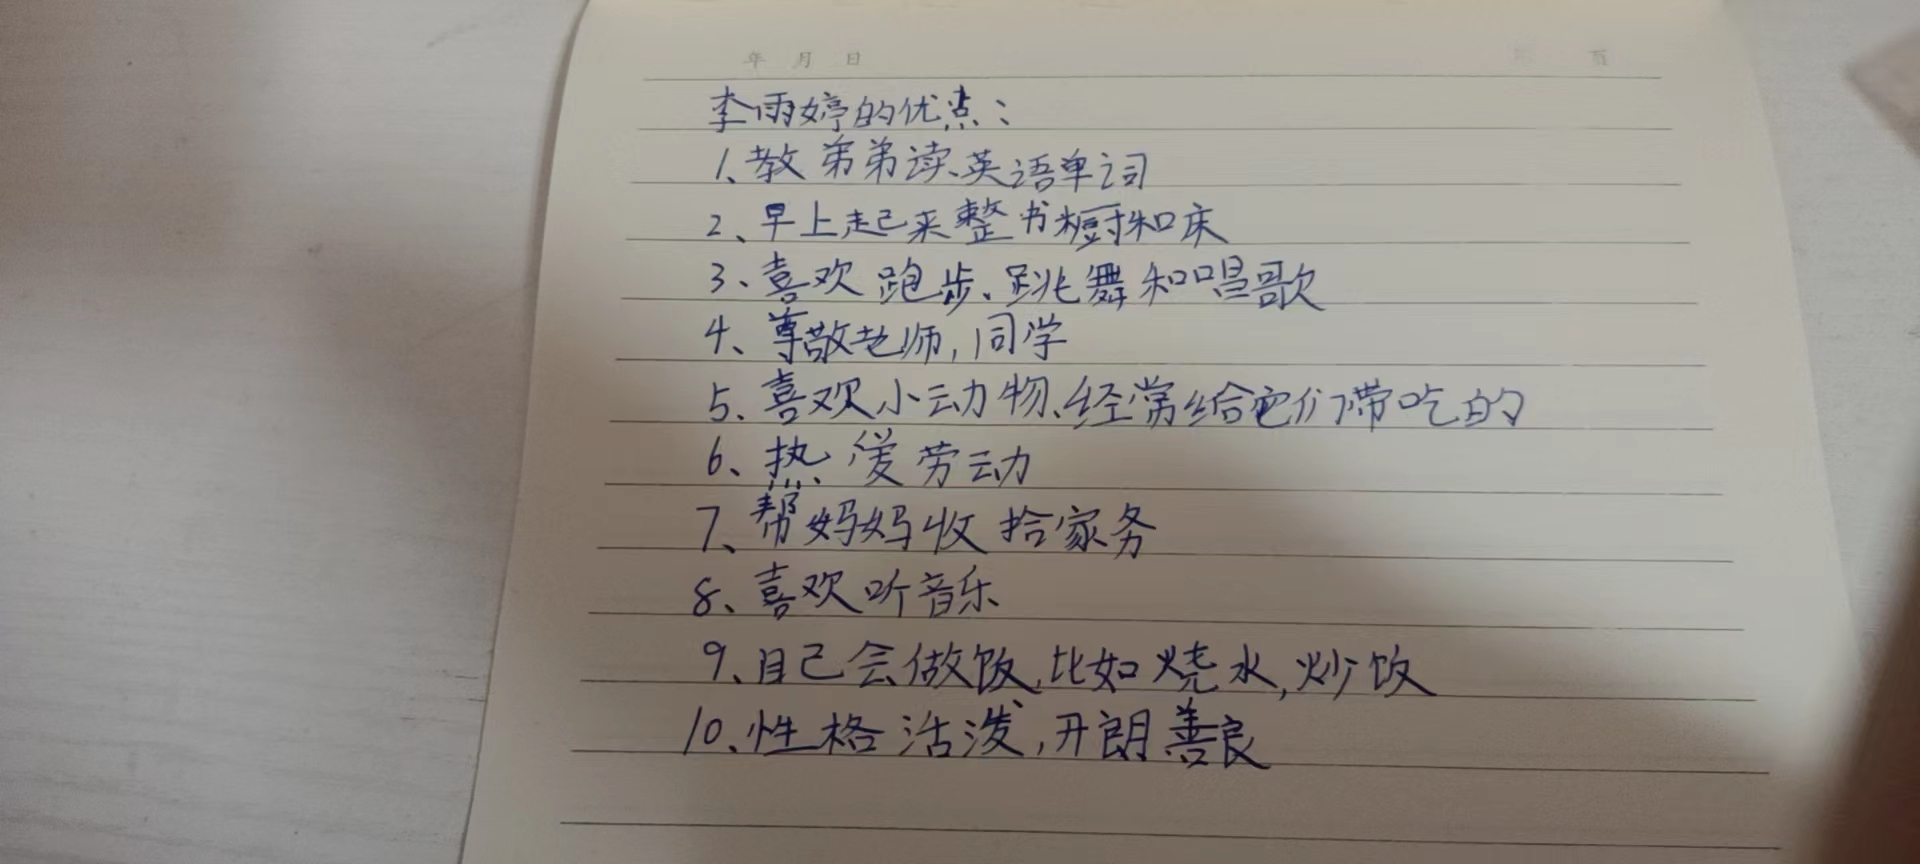 年 月 日
页
李雨婷的优点：
1、教弟弟读英语单词
2、早上起来整书橱和床
3、喜欢跑步、跳舞和唱歌
4、尊敬老师,同学
5、喜欢小动物、经常给它们带吃的
6、热爱劳动
7、帮妈妈收拾家务
8、喜欢听音乐
9、自己会做饭,比如烧水,炒饭
10、性格活泼,开朗善良